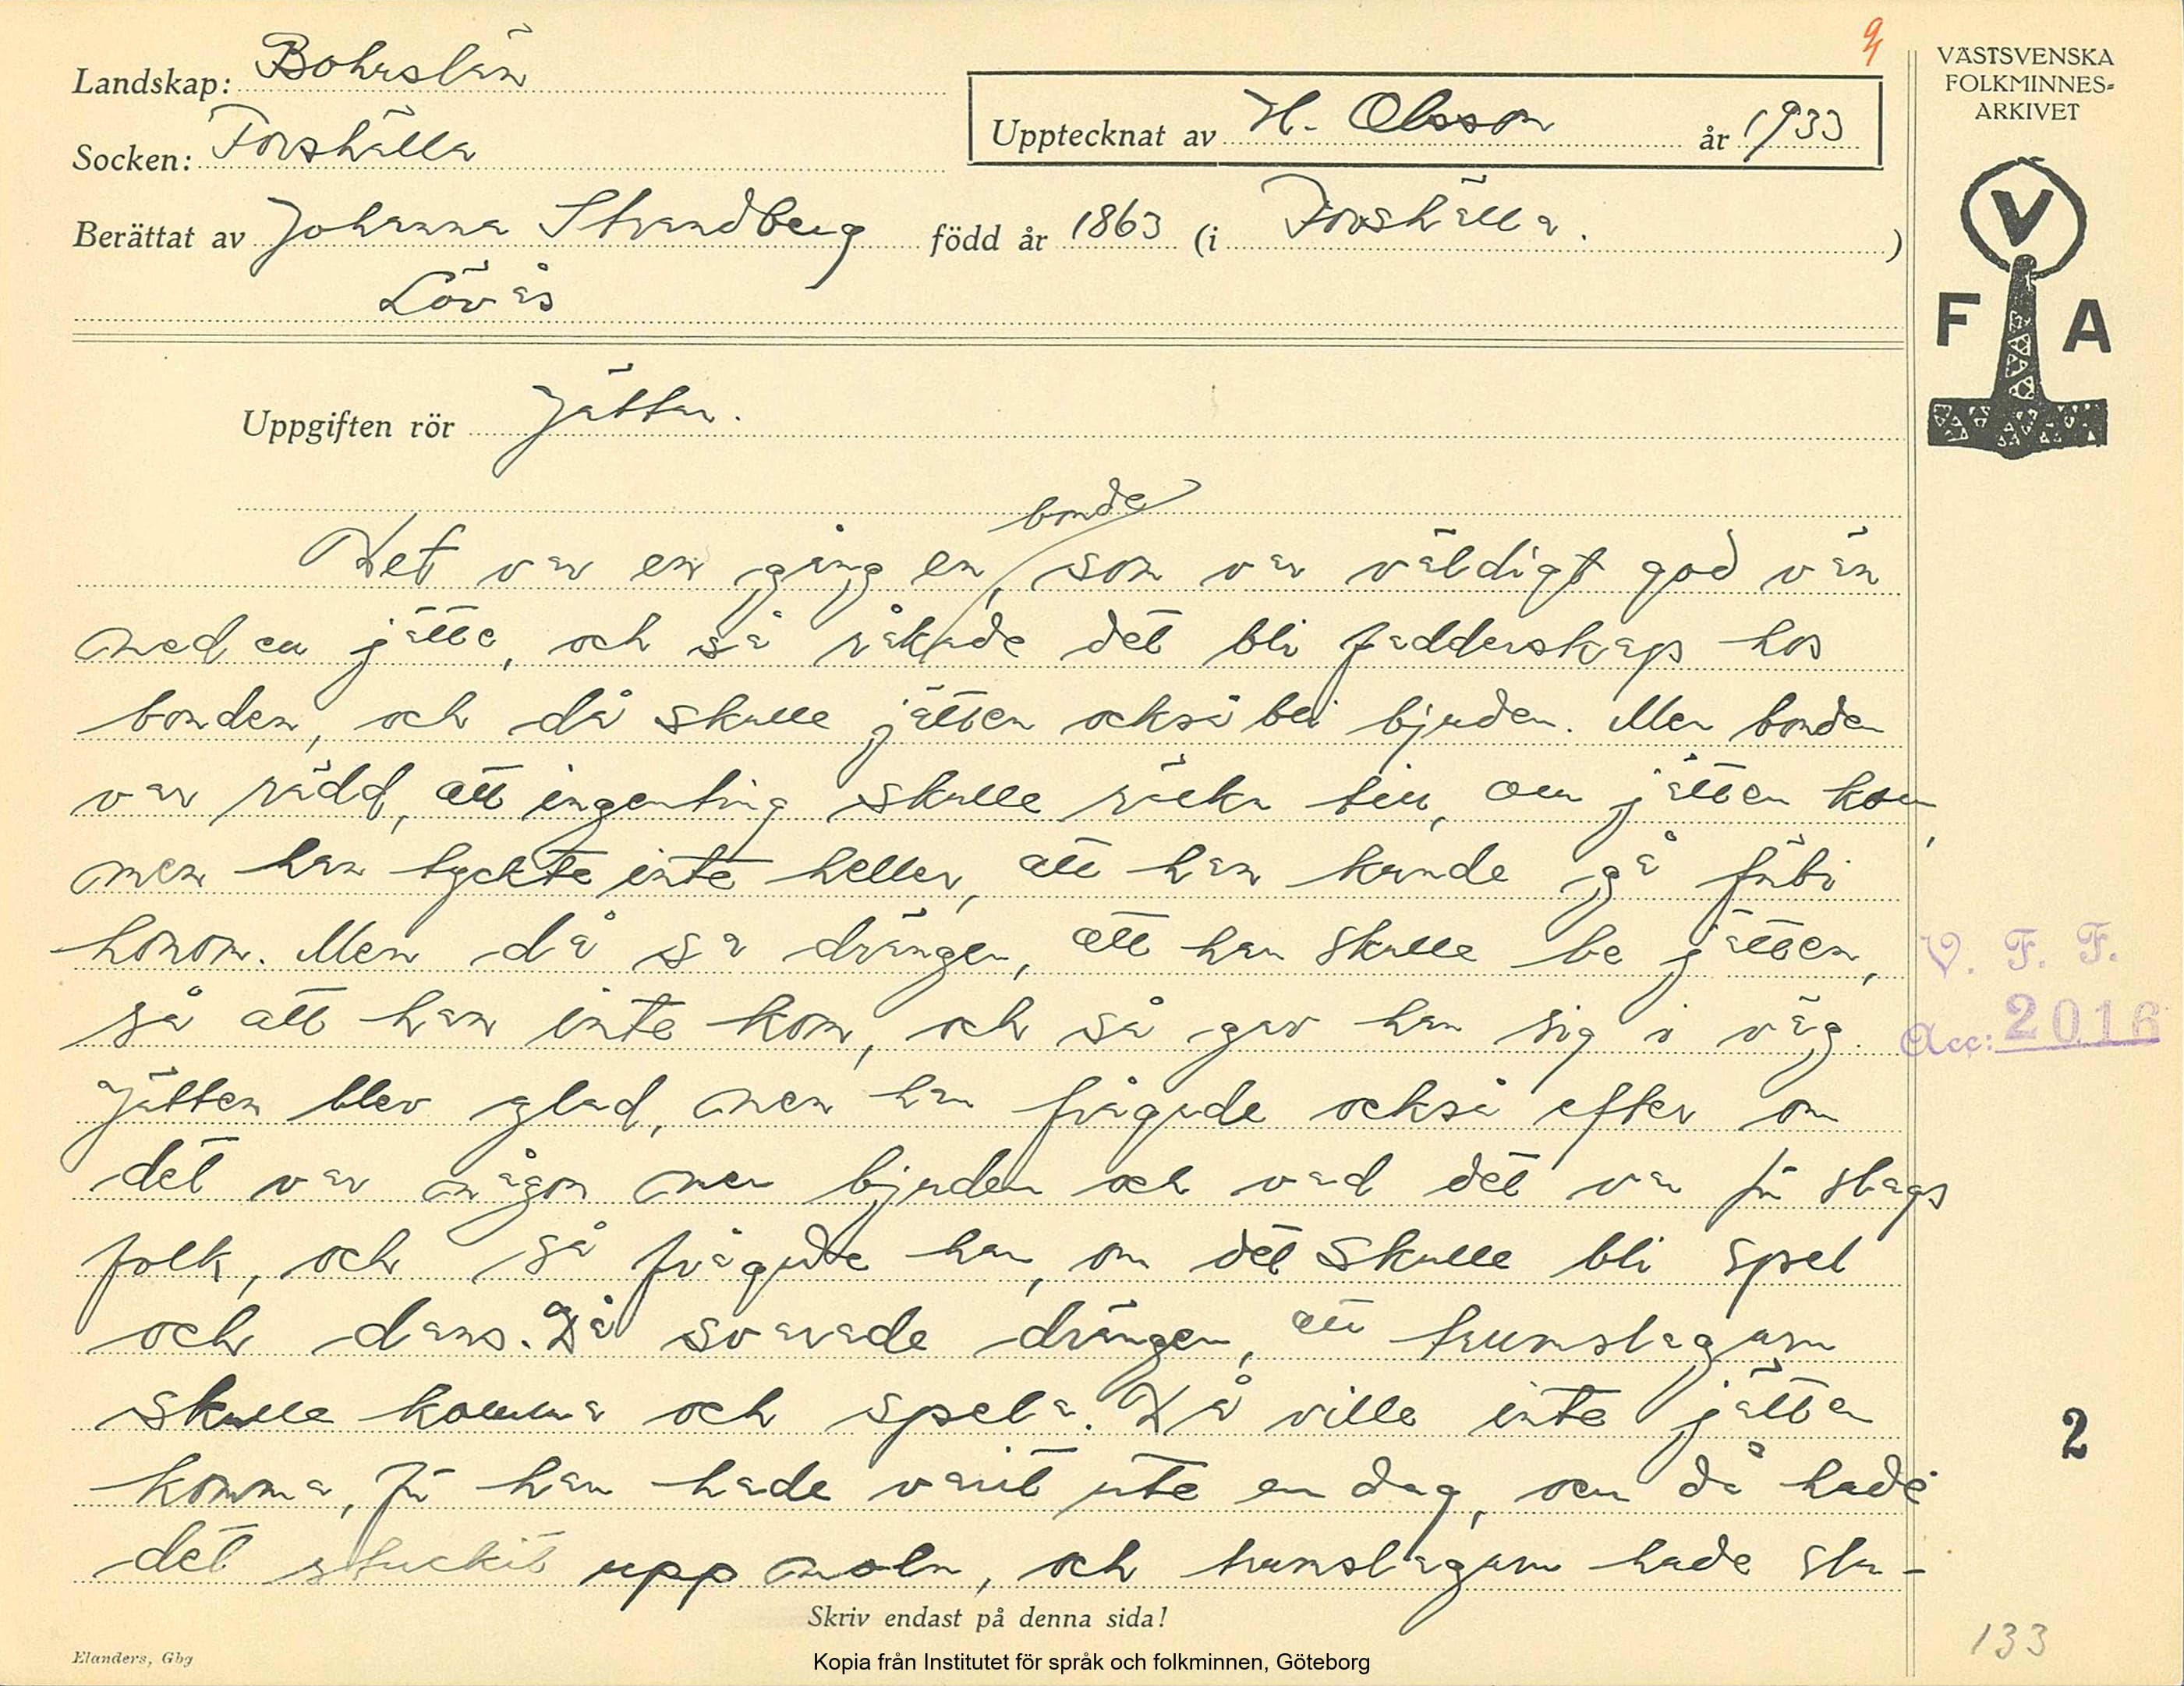 Landskap: Bohuslän
Socken: Forshälla
Upptecknat av H. Olsson år 1933
Berättat av Johanna Strandberg född år 1863 (i Forshälla. )
Lövås
VÄSTSVENSKA
FOLKMINNES-
ARKIVET
V
F A
Uppgiften rör Jättar.
bonde
Det var en gång en, som var väldigt god vän
med en jätte, och så råkade det bli fadderskap hos
bonden, och då skulle jätten också bli bjuden. Men bonden
var rädd, att ingenting skulle räcka till, om jätten kom,
men han tyckte inte heller, att han kunde gå förbi
honom. Men då sa drängen, att han skulle be jätten,
så att han inte kom, och så gav han sig i väg.
Jätten blev glad, men han frågade också efter om
det var någon mer bjuden och vad det var för slags
folk, och så frågade han, om det skulle bli spel
och dans. Då svarade drängen, att trumslagarn
skulle komma och spela. Då ville inte jätten
komma, för han hade varit ute en dag, och då hade
det stuckit upp moln, och trumslagarn hade sla-
V. F. F.
Acc: 2016
2
133
Skriv endast på denna sida!
Elanders, Gbg
Kopia från Institutet för språk och folkminnen, Göteborg